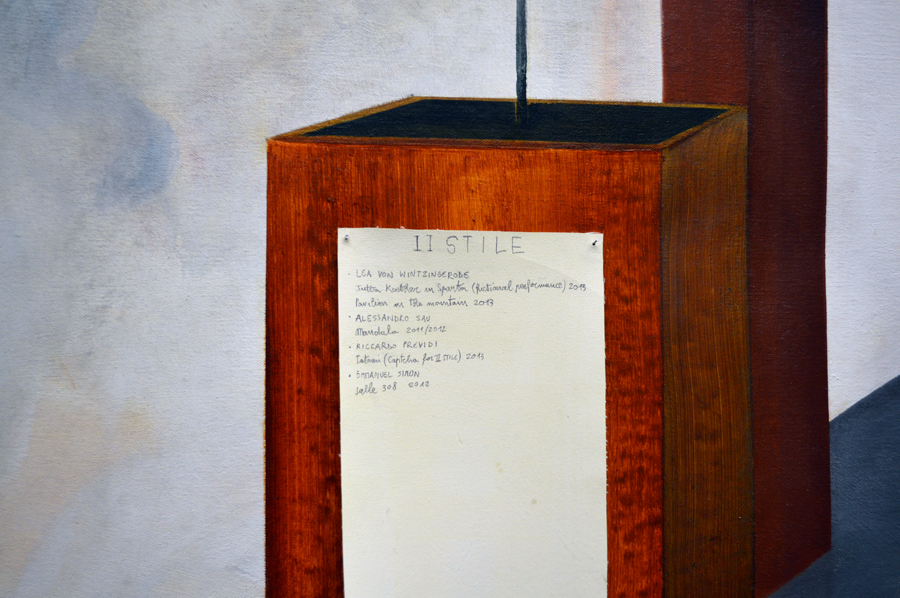 II STILE
• LEA VON WINTZINGERODE
Jutta Koether in Sparta (fictional performance) 2013
Pavilion on the mountain 2013
• ALESSANDRO SAU
Mandala 2011/2012
• RICCARDO PREVIDI
(Captcha for II STILE) 2013
• EMMANUEL SIMON
Salle 308 2012